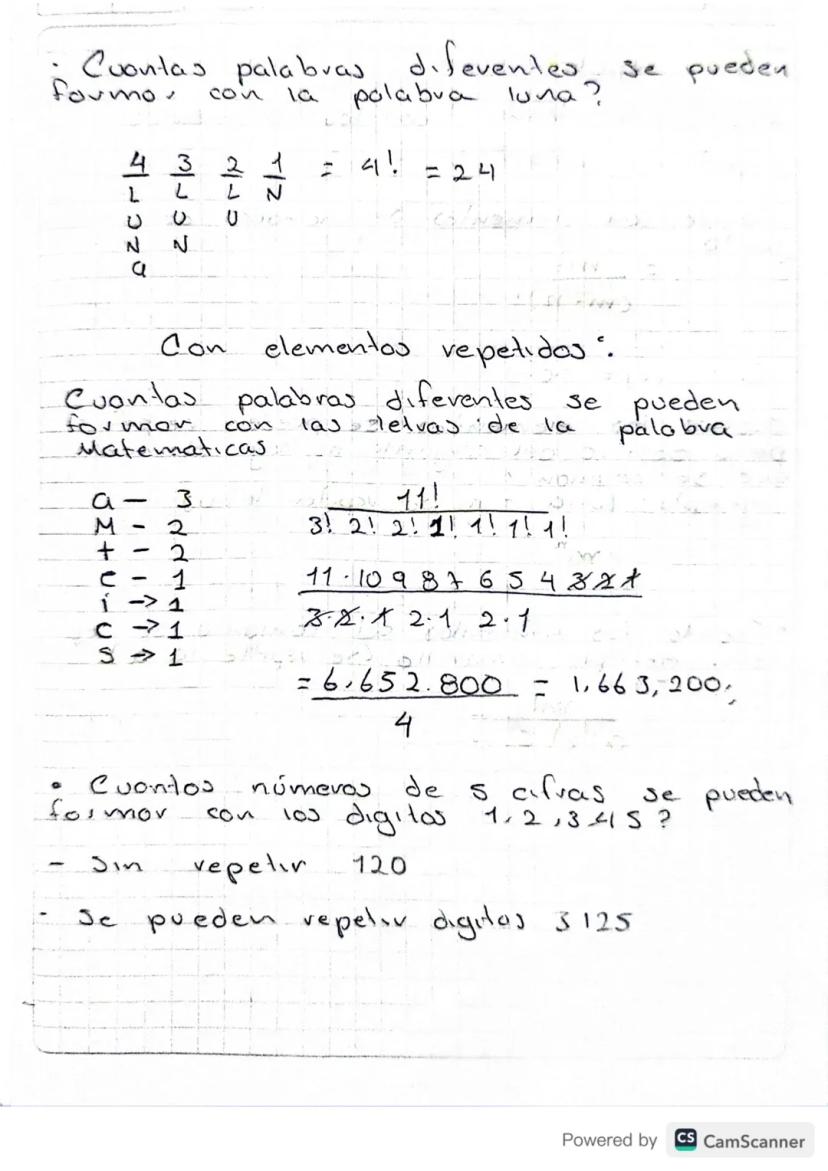 · Cuantas palabras diferentes se pueden
formar con la palabra luna?
4 3 2 1 = 4! = 24
L L L N
U U U
N N
a
Con elementos repetidos:
Cuantas palabras diferentes se pueden
formar con las letras de la palabra
Matematicas
a - 3 11!
M - 2 3! 2! 2! 1! 1! 1! 1!
t - 2
e - 1 11·10 9 8 7 6 5 4 3 2 1
i -> 1 3·2·1 2·1 2·1
c -> 1
s -> 1
= 6.652.800 = 1,663,200
4
• Cuantos números de 5 cifras se pueden
formar con los digitos 1, 2, 3 4 5?
- Sin repetir 120
- Se pueden repetir digitos 3125
Powered by CS CamScanner